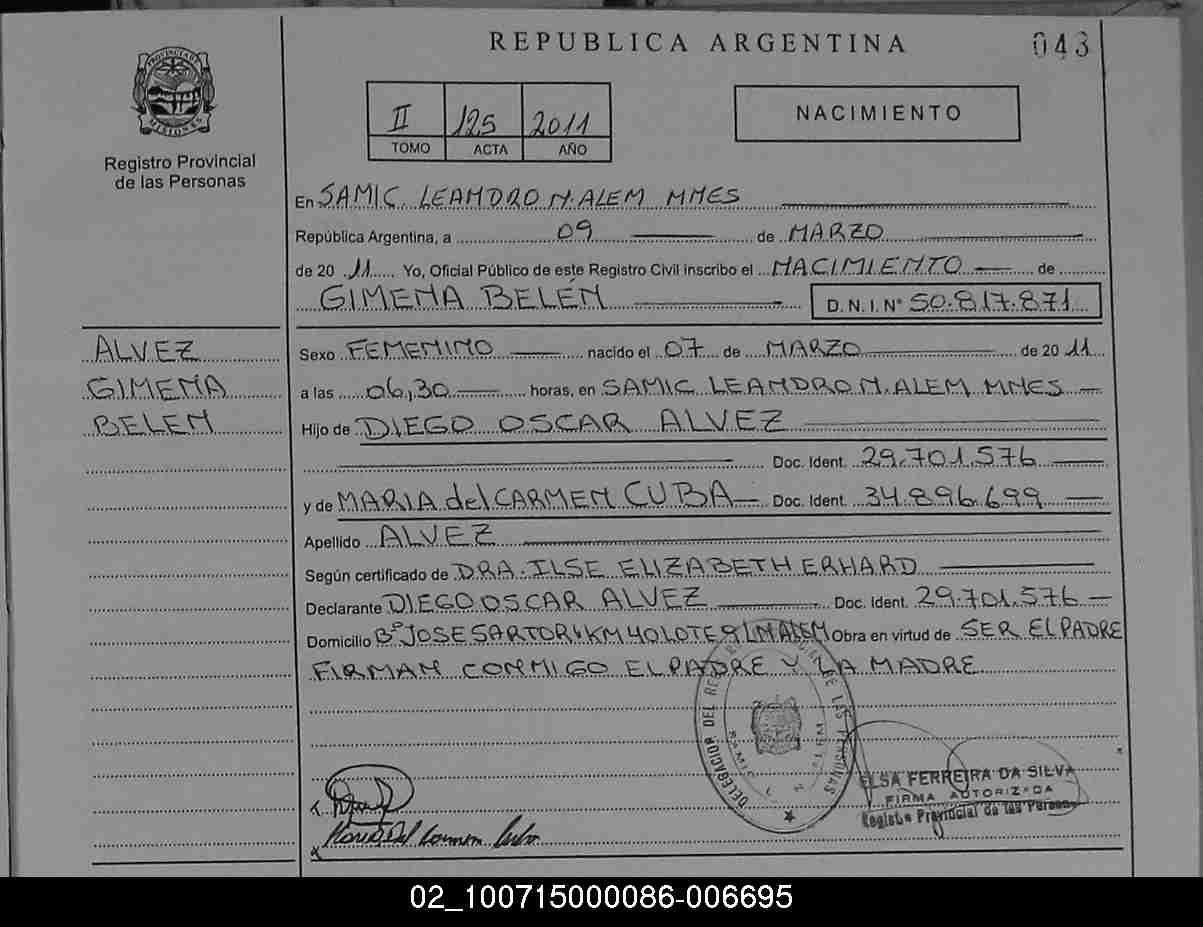 REPUBLICA ARGENTINA
043
PROVINCIA DE MISIONES
Registro Provincial
de las Personas
II 125 2011
TOMO ACTA AÑO
NACIMIENTO
En SAMIC LEANDRO N. ALEM MNES
República Argentina, a 09 de MARZO
de 20 11 Yo, Oficial Público de este Registro Civil inscribo el NACIMIENTO de
GIMENA BELÉN D.N.I. Nº 50.817.871
ALVEZ
GIMENA
BELEN
Sexo FEMENINO nacido el 07 de MARZO de 20 11
a las 06,30 horas, en SAMIC LEANDRO N. ALEM MNES
Hijo de DIEGO OSCAR ALVEZ
Doc. Ident. 29.701.576
y de MARIA del CARMEN CUBA Doc. Ident. 34.896.699
Apellido ALVEZ
Según certificado de DRA. ILSE ELIZABETH ERHARD
Declarante DIEGO OSCAR ALVEZ Doc. Ident. 29.701.576
Domicilio Bº JOSE SARTORI KM 40 LOTE 9 L N ALEM Obra en virtud de SER EL PADRE
FIRMAN CONMIGO EL PADRE Y LA MADRE
DELEGACION DEL REGISTRO PROVINCIAL DE LAS PERSONAS
SAMIC
ELSA FERREIRA DA SILVA
FIRMA AUTORIZADA
Registro Provincial de las Personas
Maria Del Carmen Cuba
02_100715000086-006695